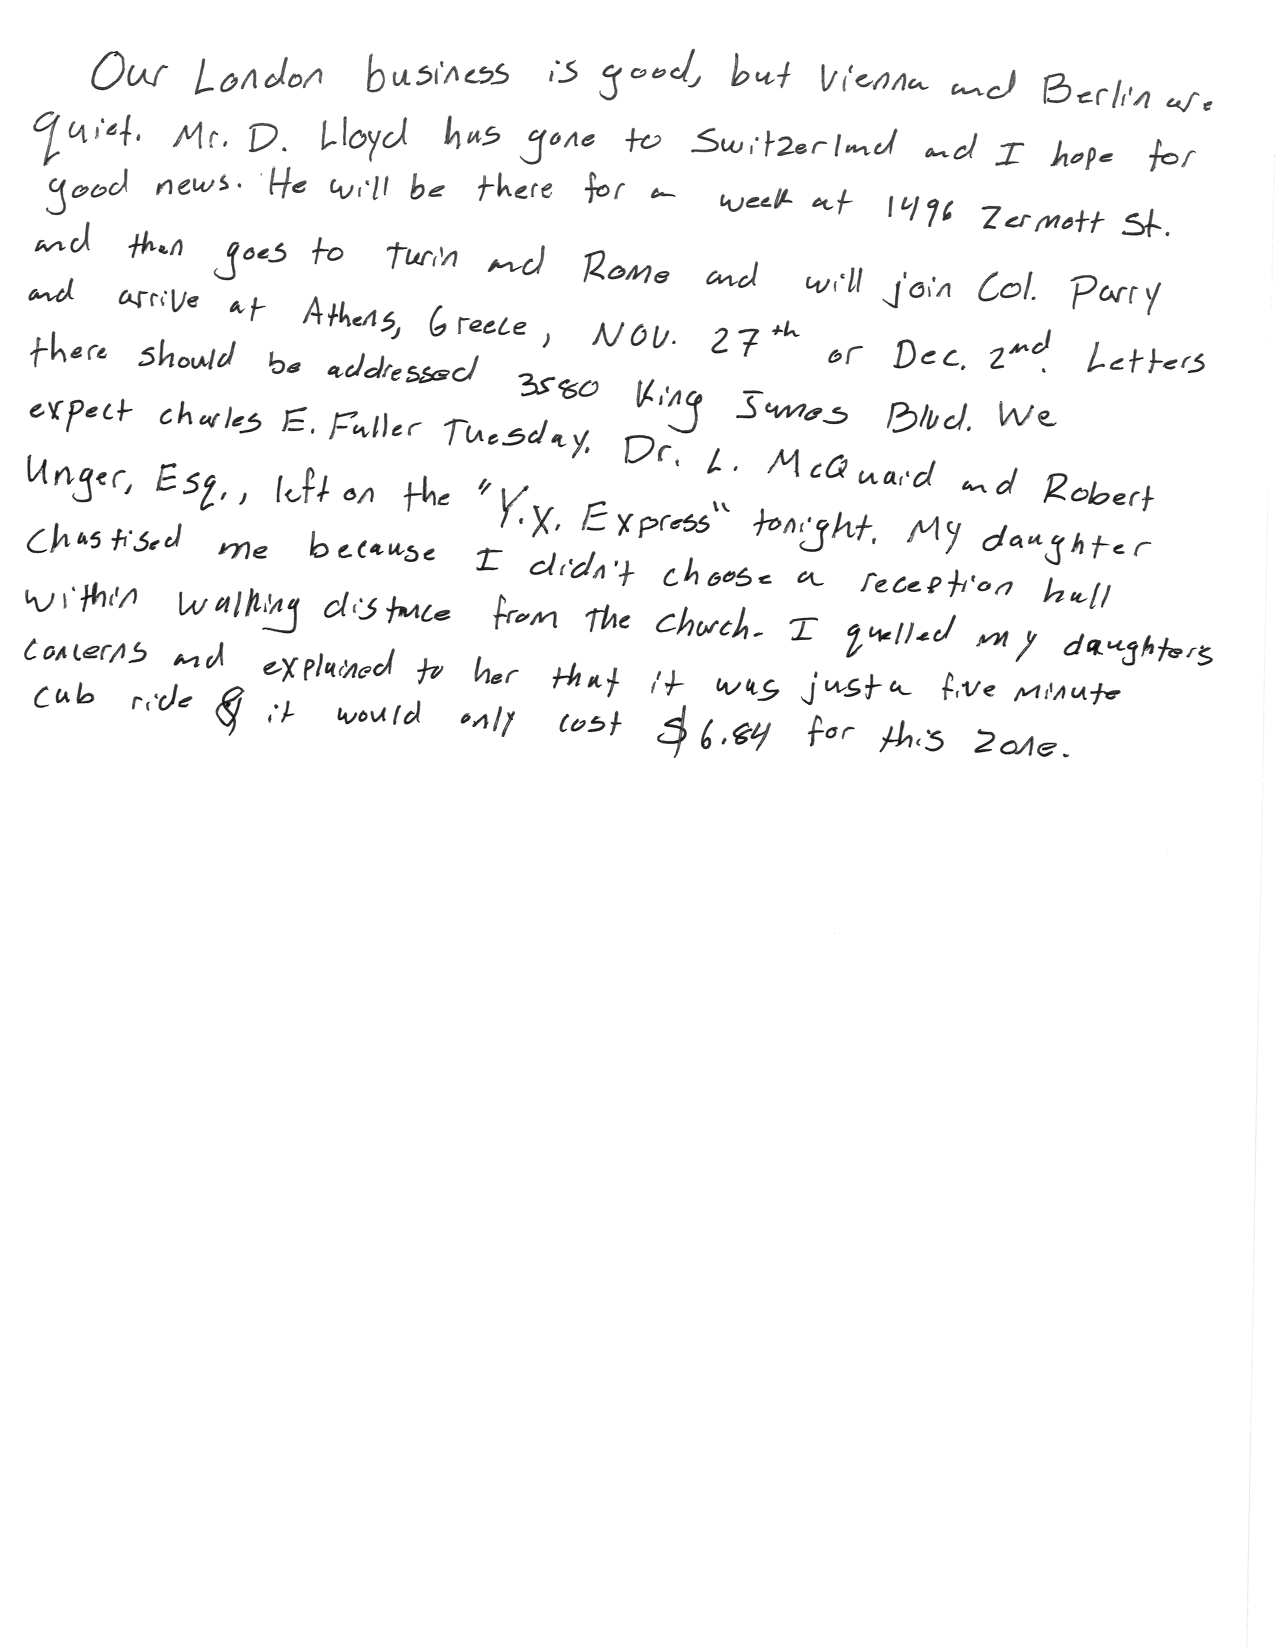 Our London business is good, but Vienna and Berlin are
quiet. Mr. D. Lloyd has gone to Switzerland and I hope for
good news. He will be there for a week at 1496 Zermott St.
and then goes to Turin and Rome and will join Col. Parry
and arrive at Athens, Greece, Nov. 27th or Dec. 2nd. Letters
there should be addressed 3580 King James Blvd. We
expect Charles E. Fuller Tuesday. Dr. L. McQuaid and Robert
Unger, Esq., left on the "Y.X. Express" tonight. My daughter
chastised me because I didn't choose a reception hall
within walking distance from the church. I quelled my daughter's
concerns and explained to her that it was just a five minute
cab ride & it would only cost $6.84 for this zone.